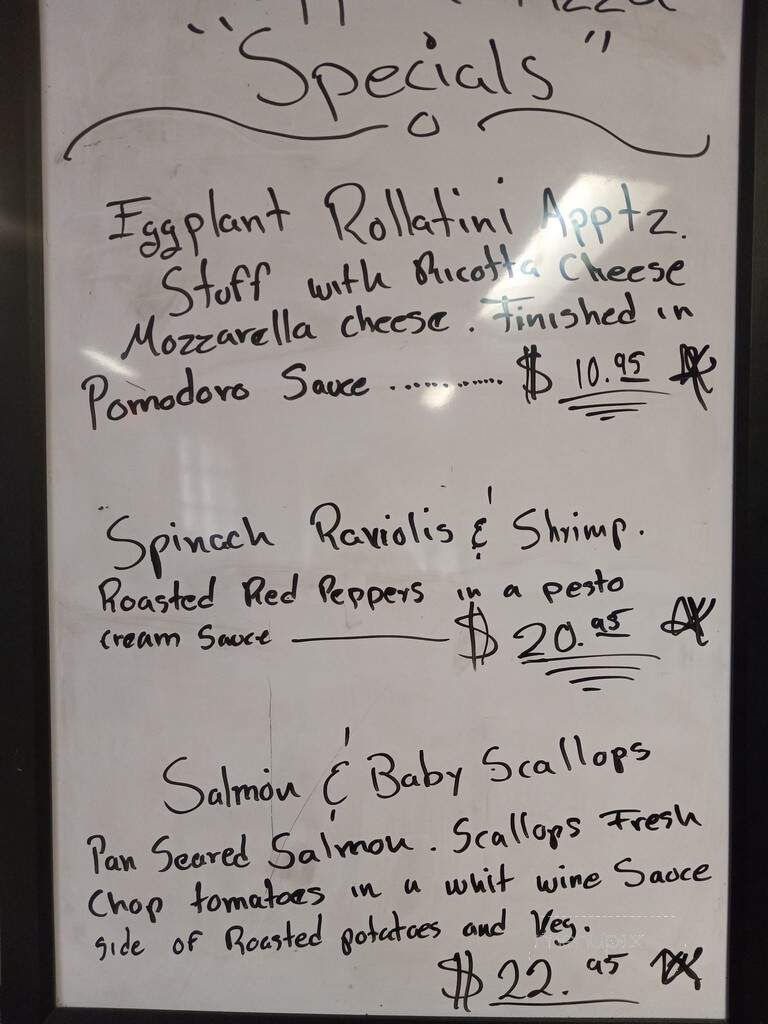 "Specials"
Eggplant Rollatini Apptz.
Stuff with Ricotta Cheese
Mozzarella cheese. Finished in
Pomodoro Sauce ............ $ 10.95
Spinach Raviolis & Shrimp.
Roasted Red Peppers in a pesto
cream Sauce ——— $ 20.95
Salmon & Baby Scallops
Pan Seared Salmon. Scallops Fresh
Chop tomatoes in a whit wine Sauce
side of Roasted potatoes and Veg.
$ 22.95